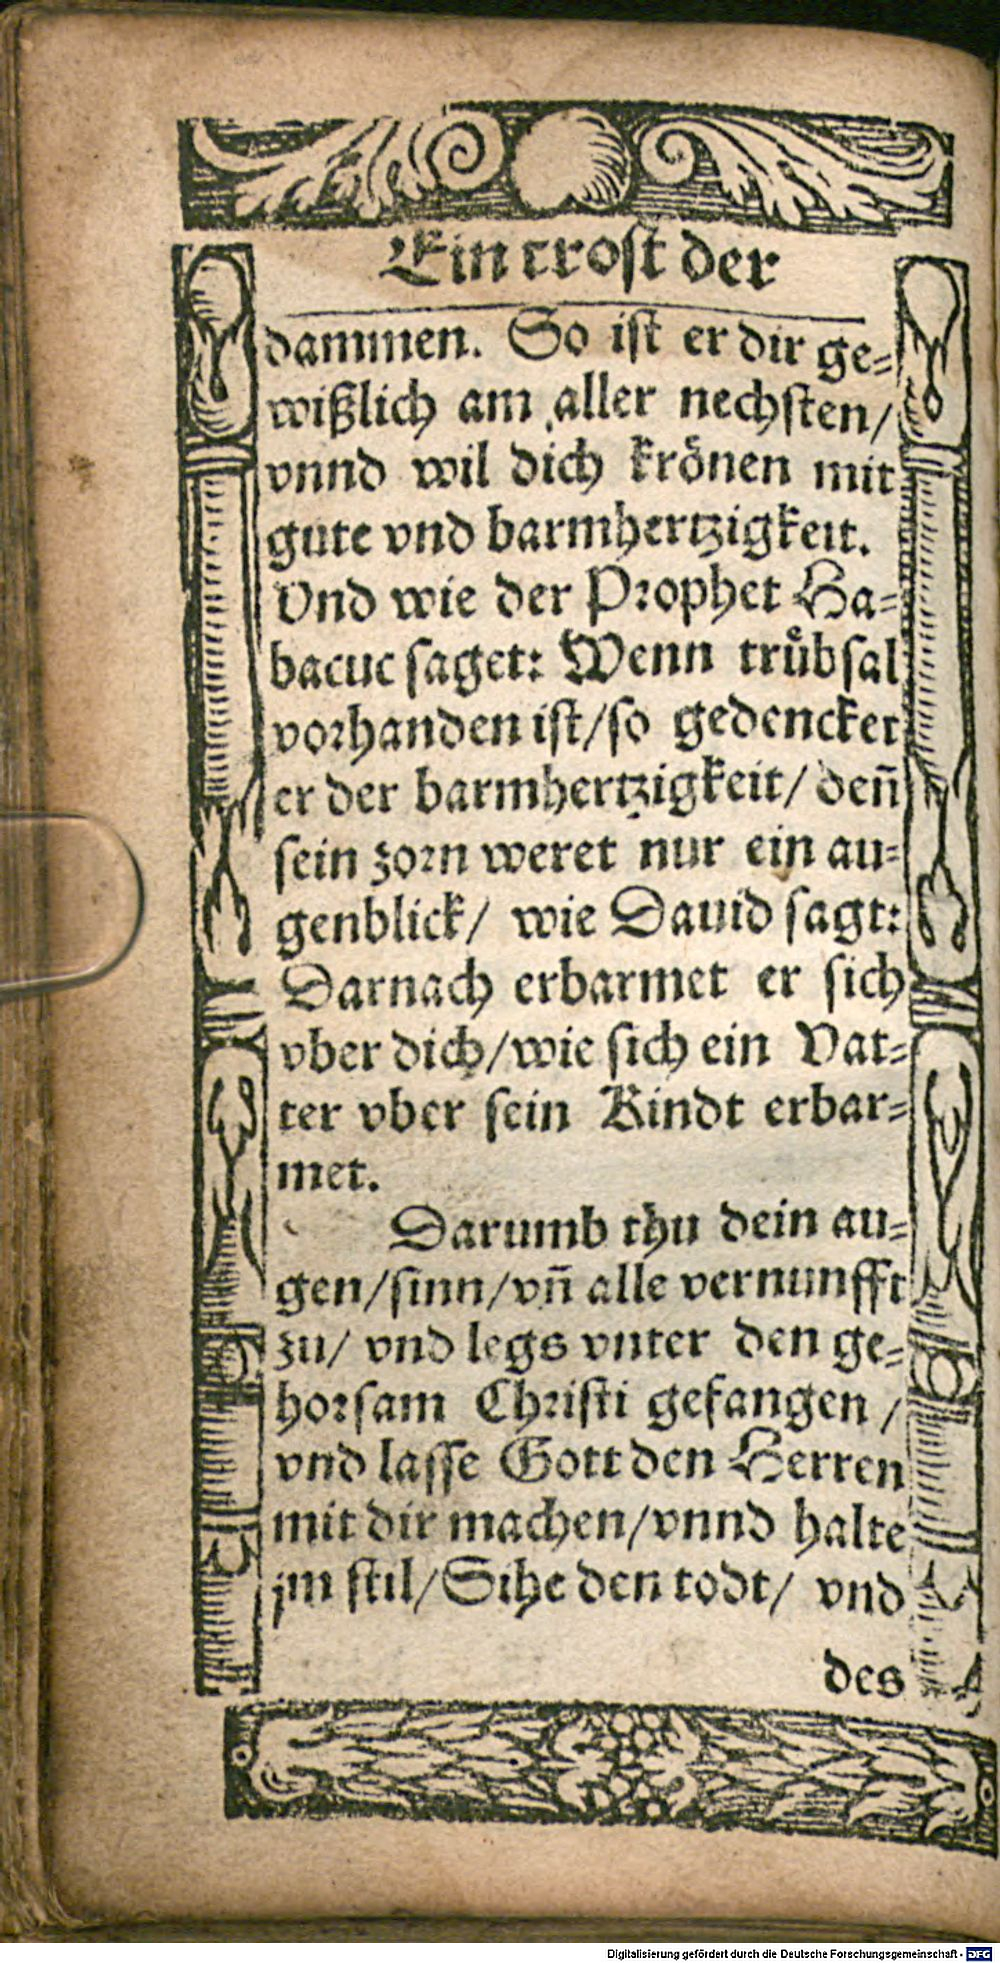 Ein trost der
dammen. So ist er dir ge-
wißlich am aller nechsten/
vnnd wil dich krönen mit
gute vnd barmhertzigkeit.
Vnd wie der Prophet Ha-
bacuc saget: Wenn trůbsal
vorhanden ist/so gedencket
er der barmhertzigkeit/ den̄
sein zorn weret nur ein au-
genblick/ wie Dauid sagt:
Darnach erbarmet er sich
vber dich/wie sich ein Vat-
ter vber sein Kindt erbar-
met.
Darumb thu dein au-
gen/sinn/vn̄ alle vernunfft
zu/ vnd legs vnter den ge-
horsam Christi gefangen /
vnd lasse Gott den Herren
mit dir machen/vnnd halte
jm stil/Sihe den todt/ vnd
des
Digitalisierung gefördert durch die Deutsche Forschungsgemeinschaft - DFG